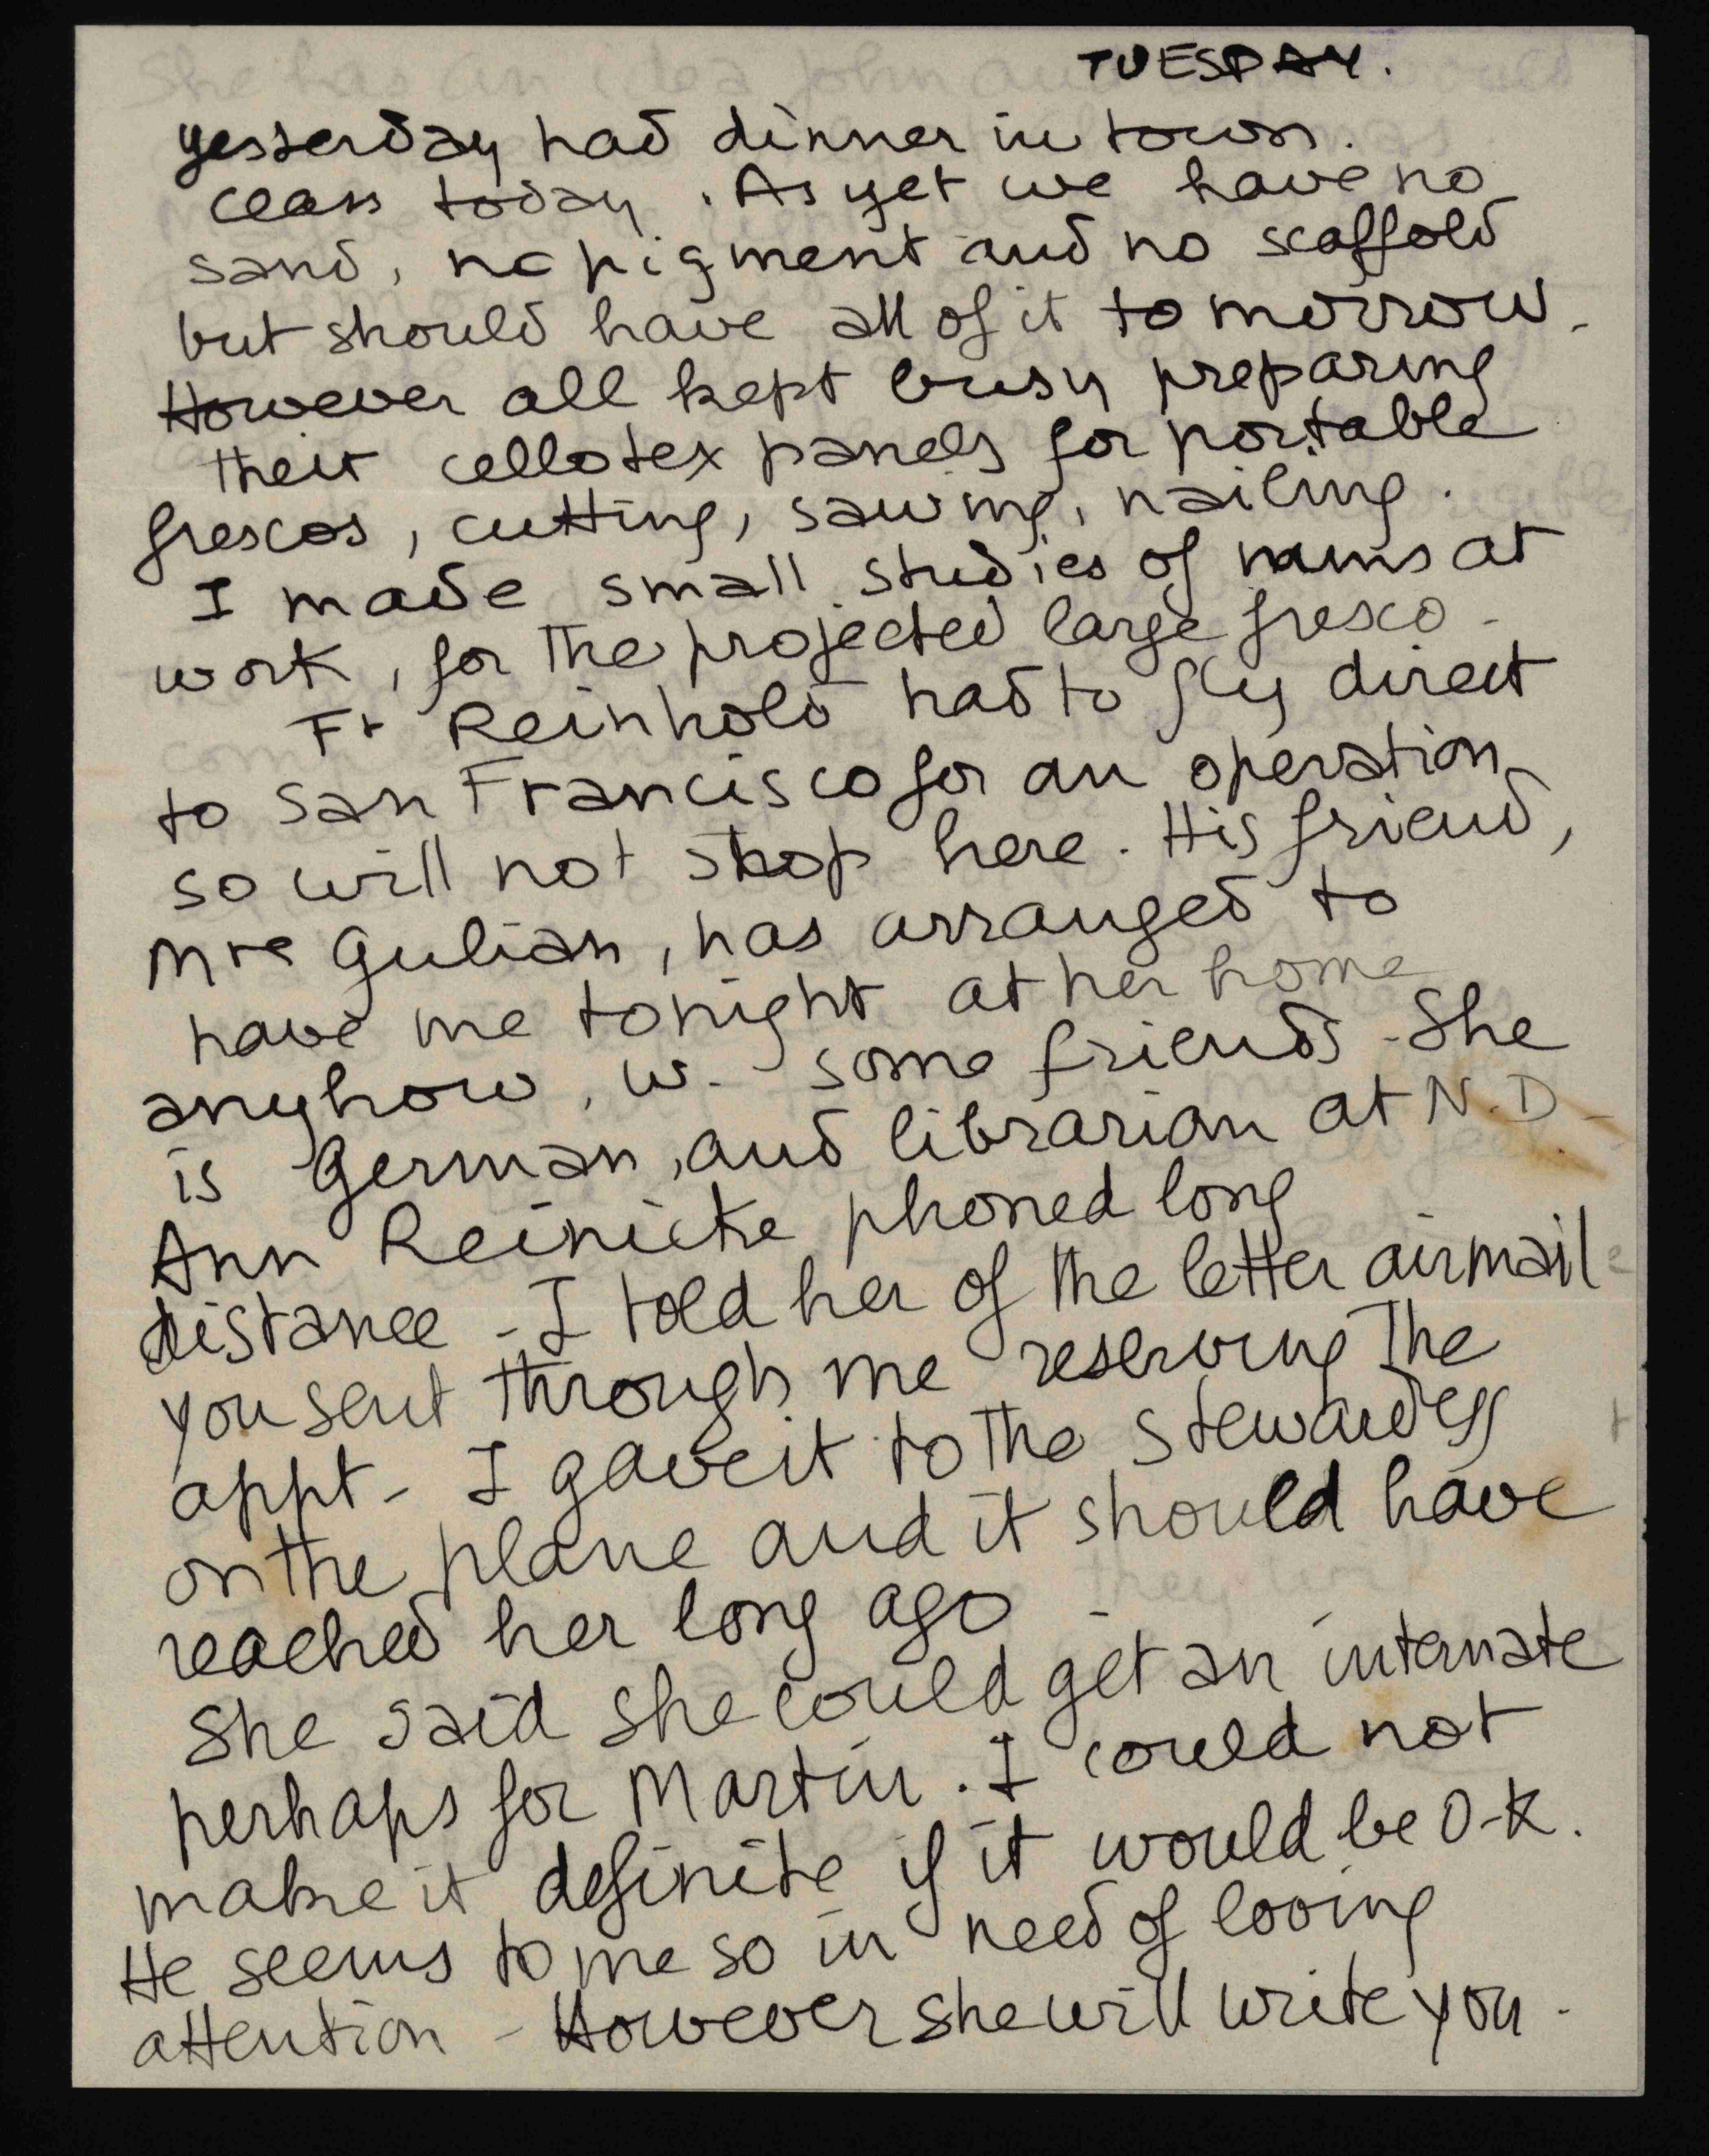 TUESDAY.
yesterday had dinner in town.
class today. As yet we have no
sand, no pigment and no scaffold
but should have all of it tomorrow.
However all kept busy preparing
their cellotex panels for portable
frescos, cutting, sawing, nailing.
I made small studies of nuns at
work, for the projected large fresco.
Fr Reinhold had to fly direct
to San Francisco for an operation
so will not stop here. His friend,
Mrs Gulian, has arranged to
have me tonight at her home
anyhow, w. some friends. She
is German, and librarian at N.D.
Ann Reinicke phoned long
distance - I told her of the letter airmail
you sent through me reserving the
appt - I gave it to the stewardess
on the plane and it should have
reached her long ago
She said she could get an internate
perhaps for Martin. I could not
make it definite if it would be O-K.
He seems to me so in need of loving
attention - However she will write you.